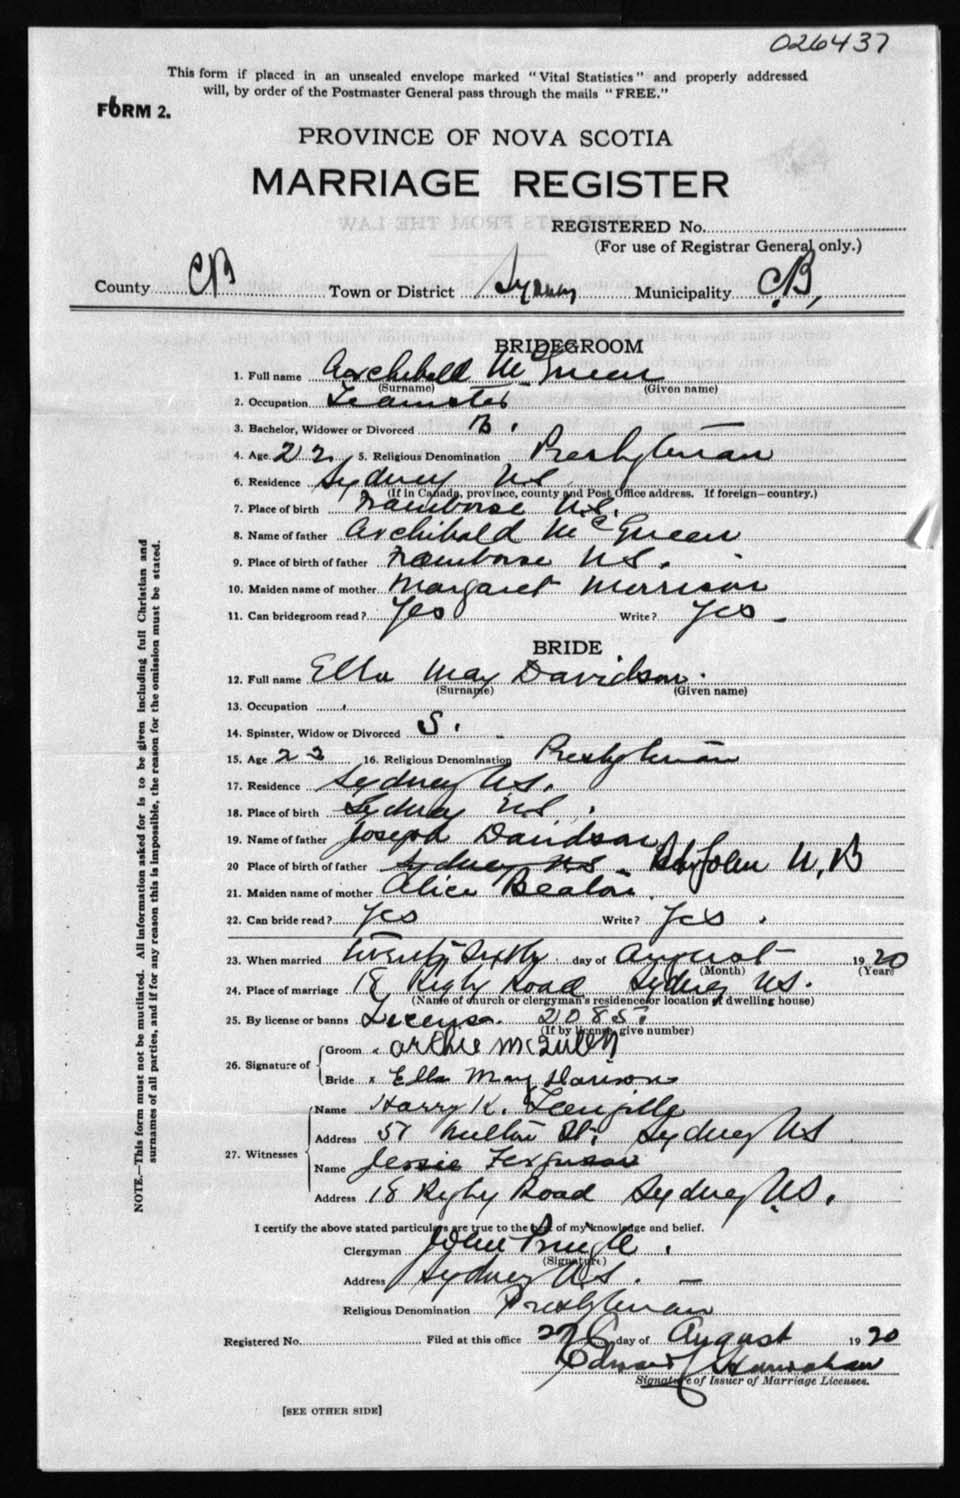 026437
This form if placed in an unsealed envelope marked "Vital Statistics" and properly addressed
will, by order of the Postmaster General pass through the mails "FREE."
FORM 2.
PROVINCE OF NOVA SCOTIA
MARRIAGE REGISTER
REGISTERED No.
(For use of Registrar General only.)
County CB Town or District Sydney Municipality C.B,
BRIDEGROOM
1. Full name Archibald McQueen
(Surname) (Given name)
2. Occupation Teamster
3. Bachelor, Widower or Divorced B.
4. Age 22 5. Religious Denomination Presbyterian
6. Residence Sydney NS
(If in Canada, province, county and Post Office address. If foreign—country.)
7. Place of birth Framboise N.S.
8. Name of father Archibald McQueen
9. Place of birth of father Framboise NS.
10. Maiden name of mother Margaret Morrison
11. Can bridegroom read? Yes Write? Yes
BRIDE
12. Full name Ella May Davidson.
(Surname) (Given name)
13. Occupation
14. Spinster, Widow or Divorced S.
15. Age 23 16. Religious Denomination Presbyterian
17. Residence Sydney NS.
18. Place of birth Sydney NS.
19. Name of father Joseph Davidson
20 Place of birth of father Sydney NS John N,B
21. Maiden name of mother Alice Beaton
22. Can bride read? Yes Write? Yes.
23. When married twenty sixth day of August 1920
(Month) (Year)
24. Place of marriage 18 Rigby Road Sydney NS.
(Name of church or clergyman's residence or location of dwelling house)
25. By license or banns License. 2085.
(If by license, give number)
26. Signature of
Groom x Archie McQueen
Bride x Ella May
27. Witnesses
Name Harry K.
Address 57 St. Sydney NS
Name Jessie Ferguson
Address 18 Rigby Road Sydney NS.
I certify the above stated particulars are true to the best of my knowledge and belief.
Clergyman John Pringle.
(Signature)
Address Sydney NS.
Religious Denomination Presbyterian
Registered No. Filed at this office 27 day of August 1920
Edward
Signature of Issuer of Marriage Licenses.
[SEE OTHER SIDE]
NOTE.—This form must not be mutilated. All information asked for is to be given including full Christian and
surnames of all parties, and if for any reason this is impossible, the reason for the omission must be stated.